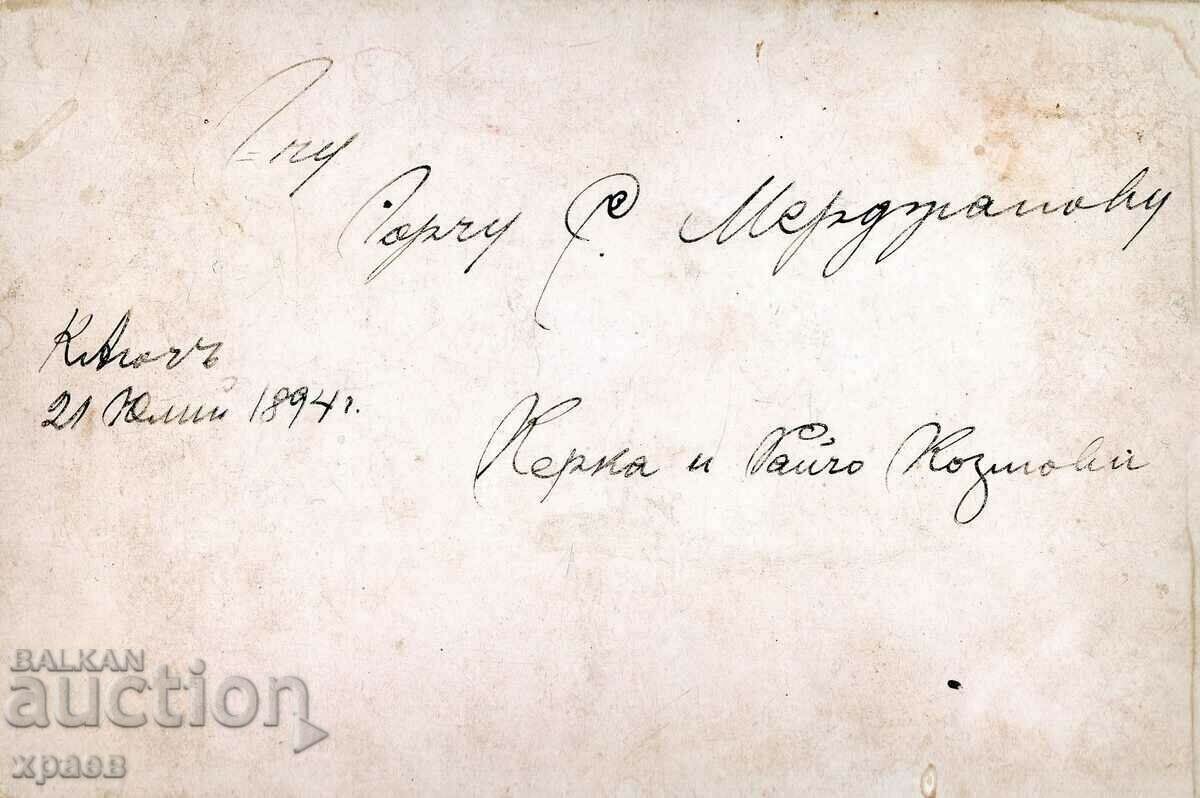 Г-ну
Горчу С. Мерджанову
К. Агачъ
21 Юлий 1894 г.
Керка и Райчо Козмови
BALKAN
auction
храев